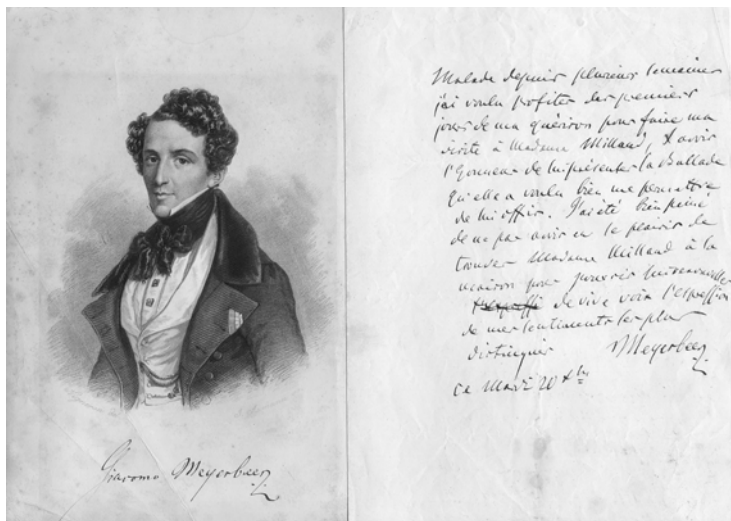 Giacomo Meyerbeer
Malade depuis plusieurs semaines
j'ai voulu profiter des premiers
jours de ma guérison pour faire ma
visite à Madame Millaud, & avoir
l'honneur de lui présenter la Ballade
qu'elle a voulu bien me permettre
de lui offrir. J'ai été bien peiné
de ne pas avoir eu le plaisir de
trouver Madame Millaud à la
maison pour pouvoir lui renouveller
de vive voix l'expression
de mes sentiments les plus
distingués Meyerbeer
ce Mardi 20